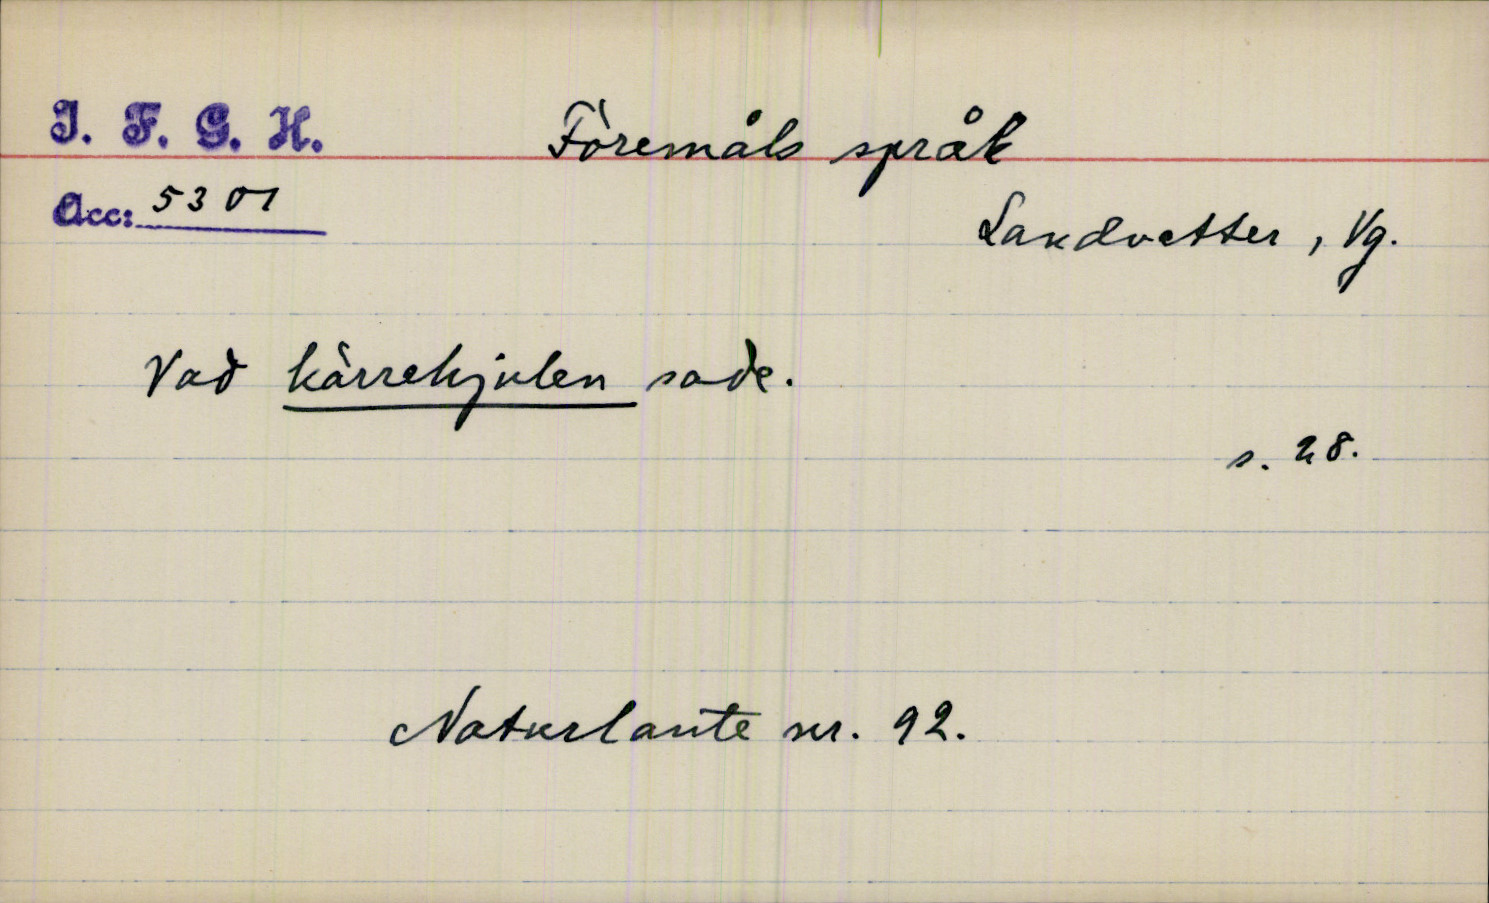 I. F. G. H.
Föremåls språk
Acc: 5301
Landvetter, Vg.
Vad kärrehjulen sade.
s. 28.
Naturlaute nr. 92.